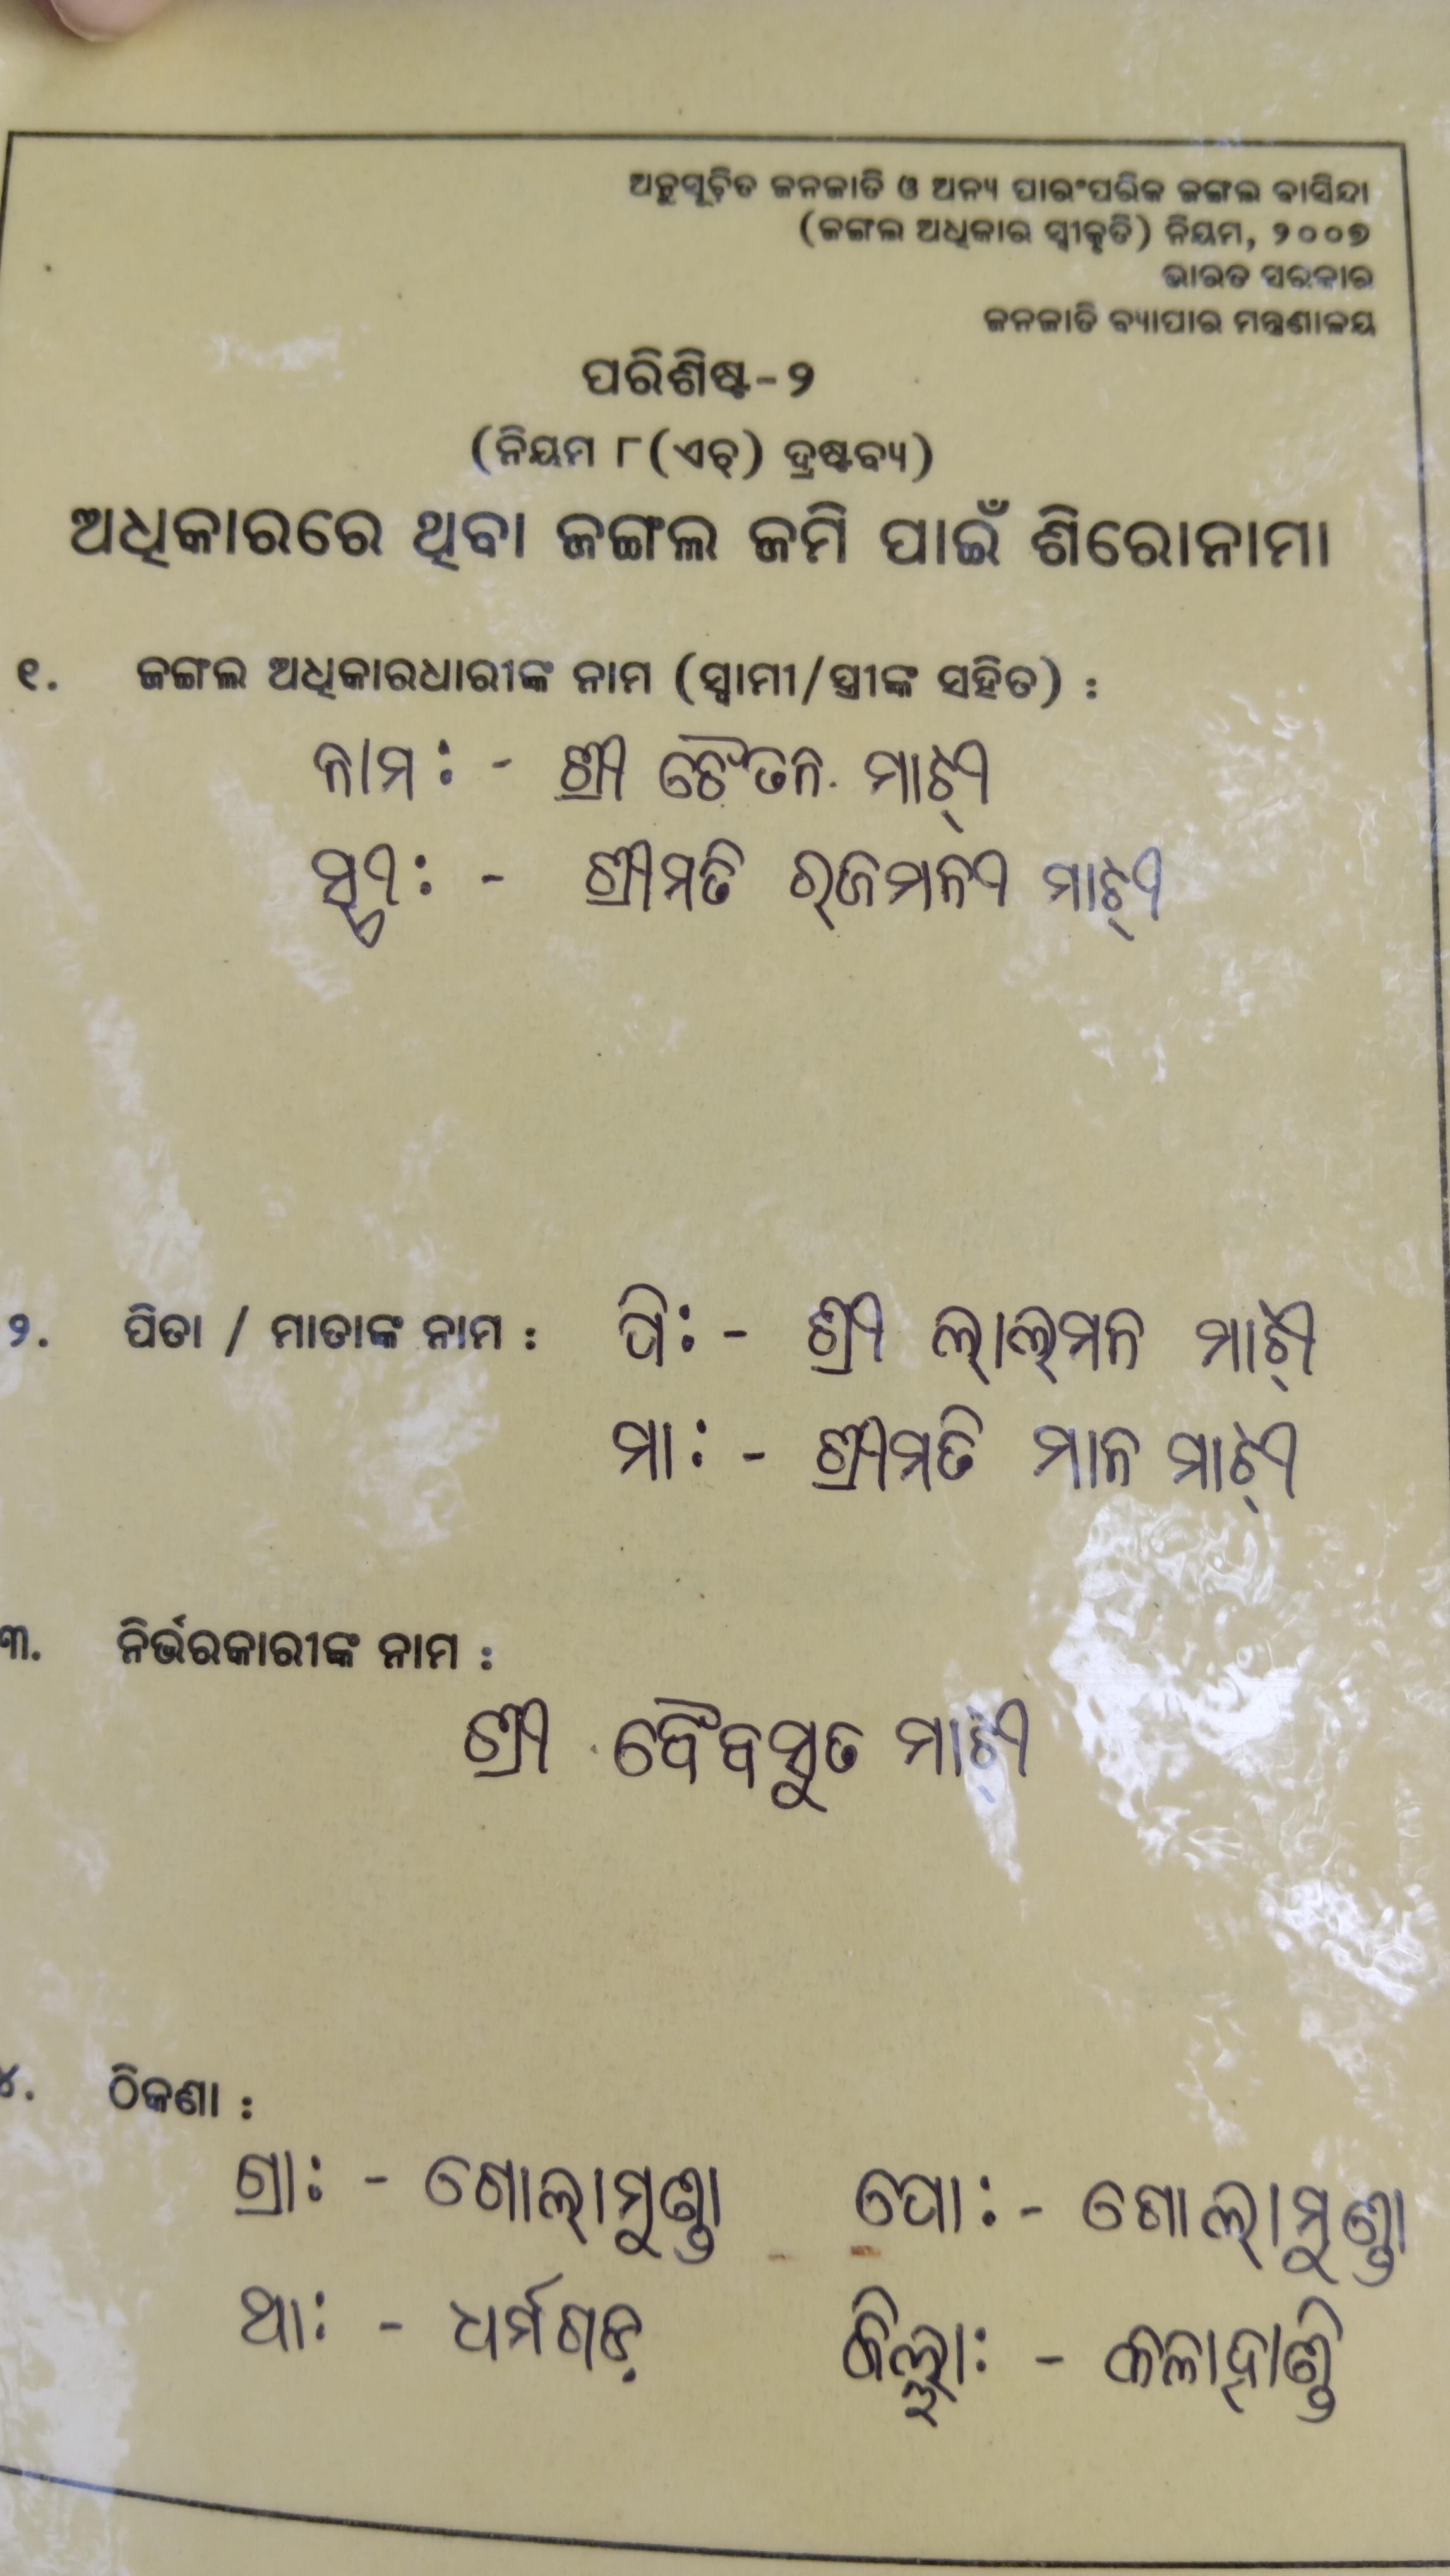 ଅନୁସୂଚିତ ଜନଜାତି ଓ ଅନ୍ୟ ପାରଂପରିକ ଜଙ୍ଗଲ ବାସିନ୍ଦା
(ଜଙ୍ଗଲ ଅଧିକାର ସ୍ୱୀକୃତି) ନିୟମ, ୨୦୦୭
ଭାରତ ସରକାର
ଜନଜାତି ବ୍ୟାପାର ମନ୍ତ୍ରଣାଳୟ
ପରିଶିଷ୍ଟ-୨
(ନିୟମ ୮(ଏଚ୍) ଦ୍ରଷ୍ଟବ୍ୟ)
ଅଧିକାରରେ ଥିବା ଜଙ୍ଗଲ ଜମି ପାଇଁ ଶିରୋନାମା
୧. ଜଙ୍ଗଲ ଅଧିକାରଧାରୀଙ୍କ ନାମ (ସ୍ୱାମୀ/ସ୍ତ୍ରୀଙ୍କ ସହିତ) :
ନାମ: - ଶ୍ରୀ ଚୈତନ ମାଝୀ
ସ୍ତ୍ରୀ: - ଶ୍ରୀମତି ମାଝୀ
୨. ପିତା / ମାତାଙ୍କ ନାମ : ପି: - ଶ୍ରୀ ଲାଲମନ ମାଝୀ
ମା: - ଶ୍ରୀମତି ମାନ ମାଝୀ
୩. ନିର୍ଭରକାରୀଙ୍କ ନାମ :
ଶ୍ରୀ ବୈବସୁତ ମାଝୀ
୪. ଠିକଣା :
ଗ୍ରା: - ଗୋଲାମୁଣ୍ଡା ପୋ: - ଗୋଲାମୁଣ୍ଡା
ଥା: - ଧର୍ମଗଡ଼ ଜିଲ୍ଲା: - କଳାହାଣ୍ଡି